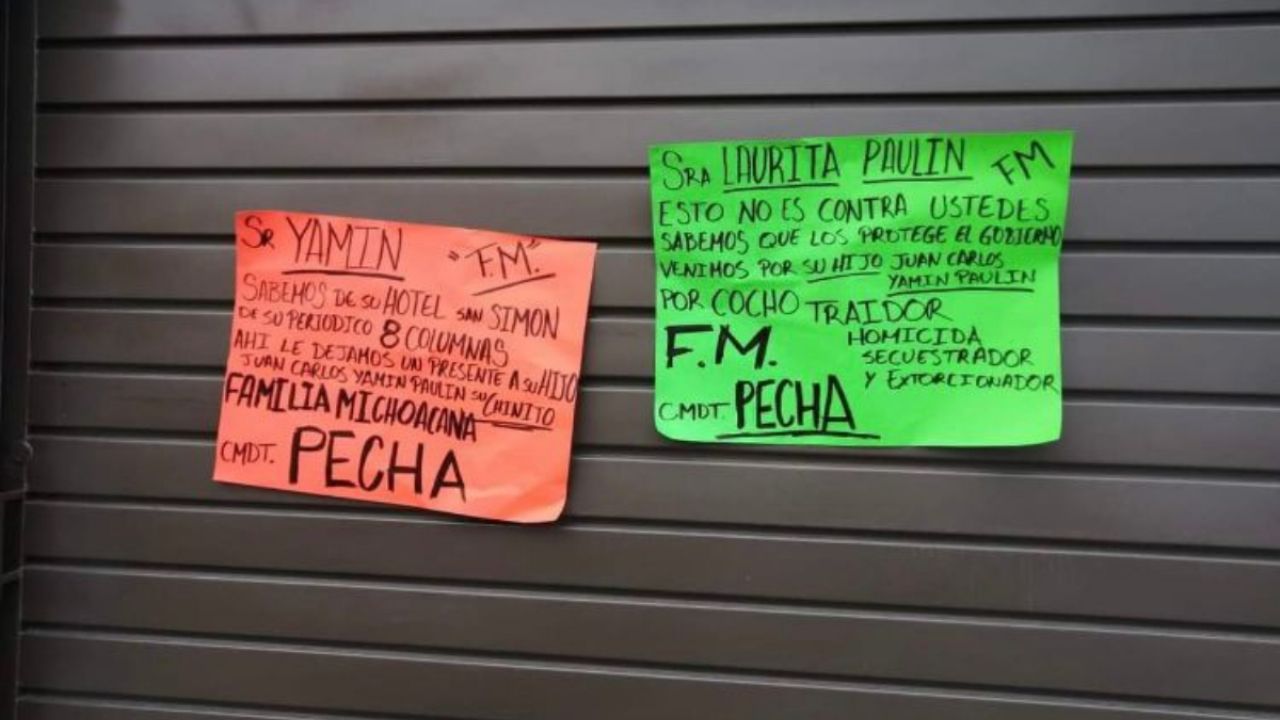 SR YAMIN "F.M."
SABEMOS DE SU HOTEL SAN SIMON
DE SU PERIODICO 8 COLUMNAS
AHI LE DEJAMOS UN PRESENTE A SU HIJO
JUAN CARLOS YAMIN PAULIN SU CHINITO
FAMILIA MICHOACANA
CMDT. PECHA
SRA LAURITA PAULIN FM
ESTO NO ES CONTRA USTEDES
SABEMOS QUE LOS PROTEGE EL GOBIERNO
VENIMOS POR SU HIJO JUAN CARLOS
YAMIN PAULIN
POR COCHO TRAIDOR
F.M. HOMICIDA
SECUESTRADOR
Y EXTORCIONADOR
CMDT. PECHA